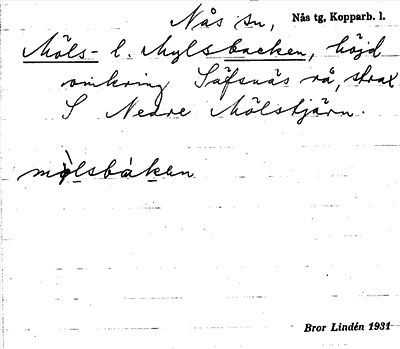 Nås sn, Nås tg, Kopparb. l.
Möls- l. Mylsbacken, höjd
omkring Säfsnäs rå, strax
S Nedre Mölstjärn.
mò̀lsbákan
Bror Lindén 1931